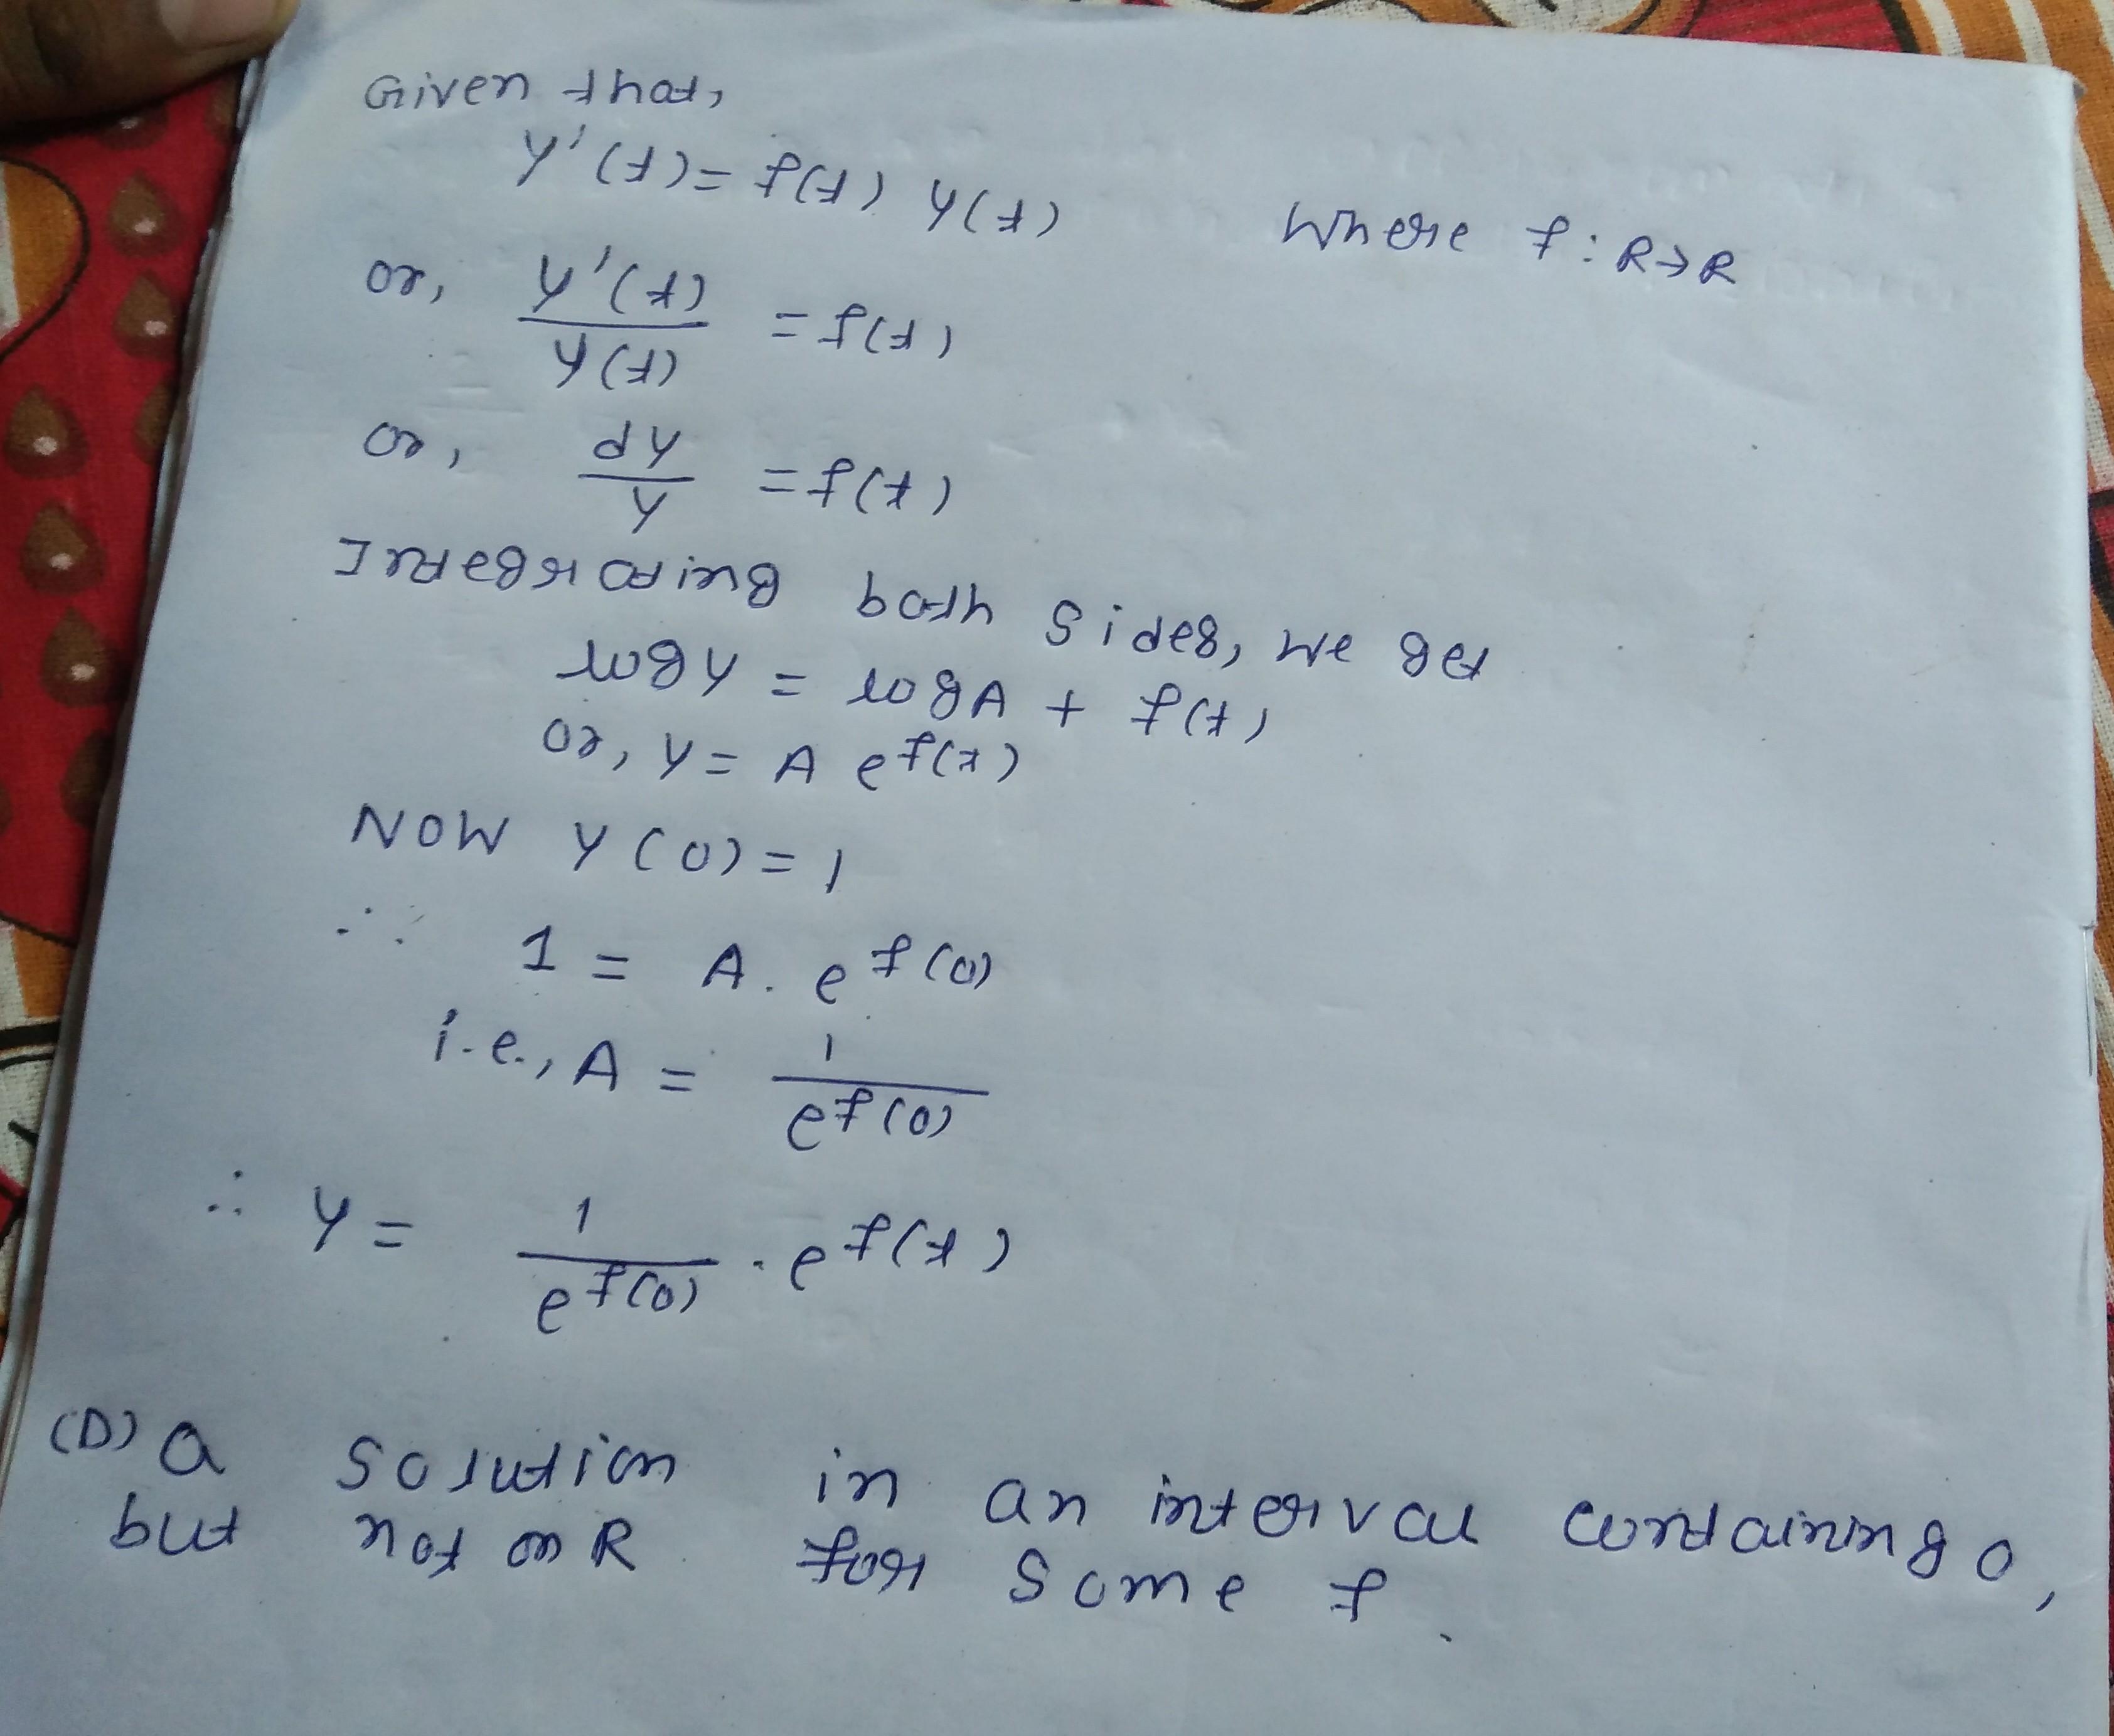 Given that,
y'(t) = f(t) y(t) Where f : R→R
or, y'(t) / y(t) = f(t)
or, dy / y = f(t)
Integrating both sides, we get
log y = log A + f(t)
or, y = A e^f(t)
NOW y(0) = 1
∴ 1 = A. e^f(0)
i.e., A = 1 / e^f(0)
∴ y = 1 / e^f(0) · e^f(t)
(D) a solution in an interval containing 0,
but not on R for some f.